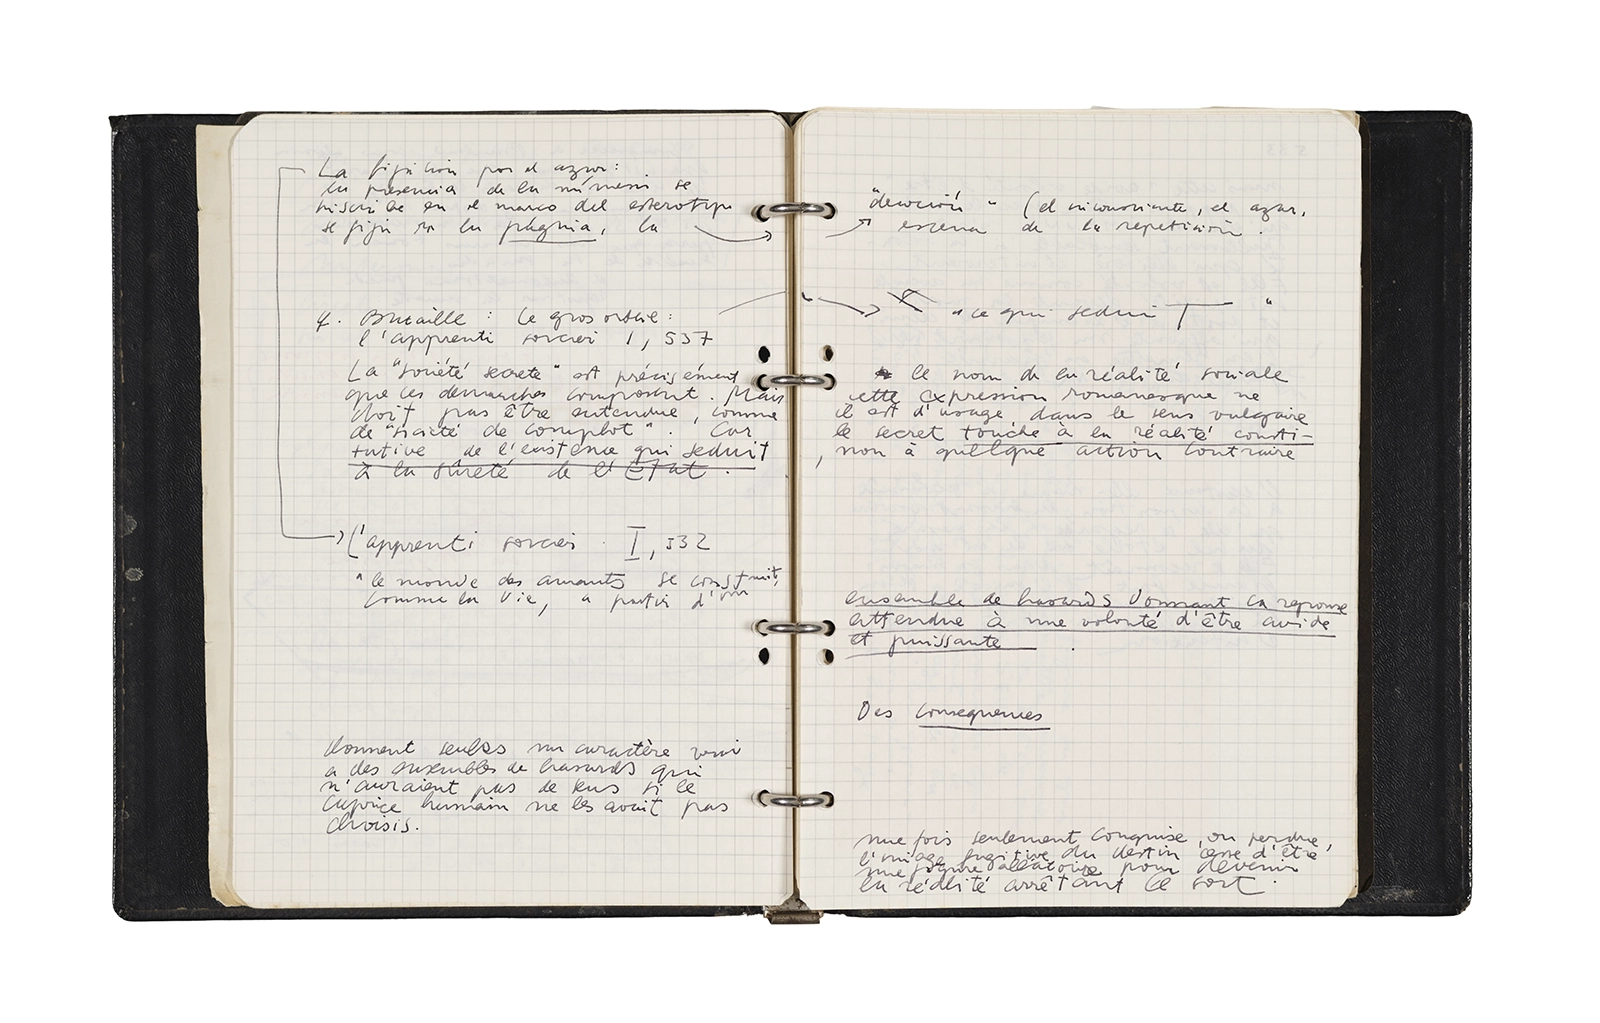 La fijación por el azar:
la presencia de la mímesis se
inscribe en el marco del estereotipo
se fija en la página, la
cf. Bataille: Le gros orteil:
l'apprenti sorcier I, 537
La "société secrète" est précisément
que ces démarches composent. Mais
doit pas être entendue, comme
de "société de complot". Car
tutive de l'existence qui séduit
à la sûreté de l'État.
L'apprenti sorcier. I, 532
"le monde des amants se construit,
comme la vie, à partir d'un
donnent seules un caractère vrai
à des ensembles de hasards qui
n'auraient pas de sens si le
caprice humain ne les avait pas
choisis.
"devoción" (el inconsciente, el azar,
escena de la repetición.
"ce qui séduit"
le nom de la réalité sociale
cette expression romanesque ne
il est d'usage dans le sens vulgaire
le secret touche à la réalité consti-
, non à quelque action contraire
ensemble de hasards donnant la réponse
attendue à une volonté d'être avide
et puissante.
Des consequences
une fois seulement conquise, ou perdue,
l'image fugitive du destin cesse d'être
une figure aléatoire pour devenir
la réalité arrêtant le sort.